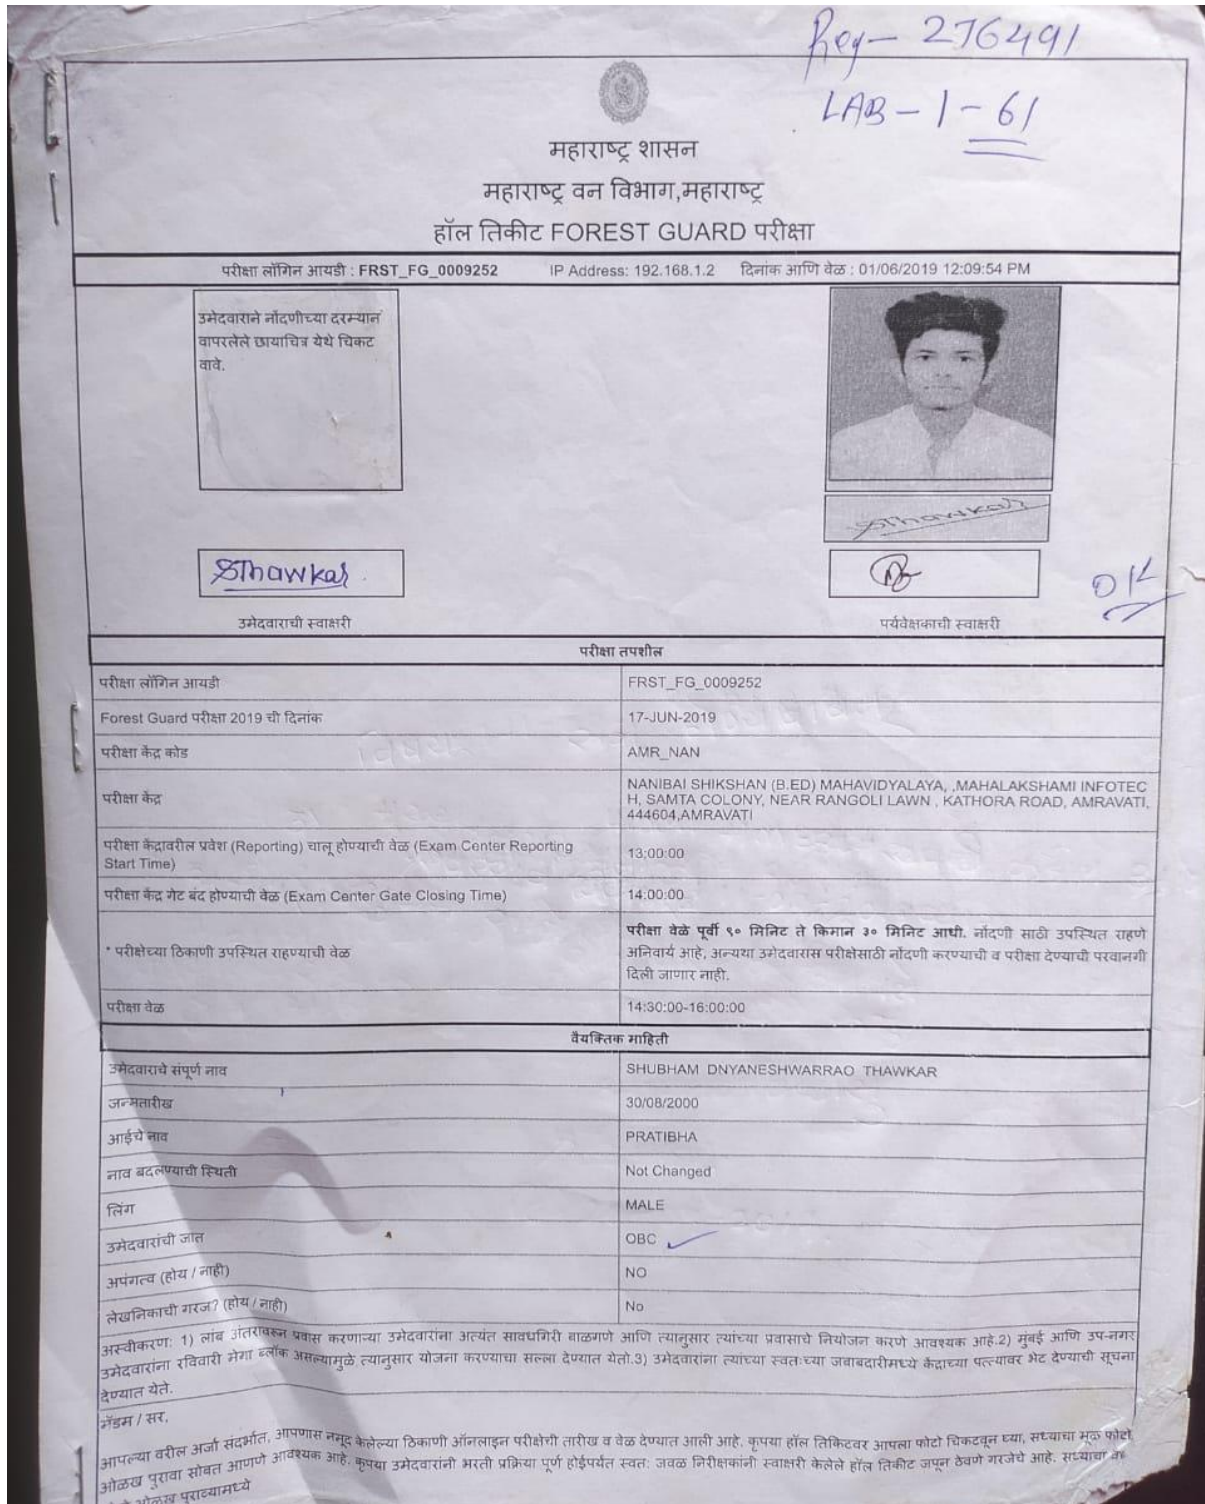 Reg - 276491
LAB - 1 - 61
महाराष्ट्र शासन
महाराष्ट्र वन विभाग,महाराष्ट्र
हॉल तिकीट FOREST GUARD परीक्षा
परीक्षा लॉगिन आयडी : FRST_FG_0009252 IP Address: 192.168.1.2 दिनांक आणि वेळ : 01/06/2019 12:09:54 PM
उमेदवाराने नोंदणीच्या दरम्यान
वापरलेले छायाचित्र येथे चिकट
वावे.
SThawkar
SThawkar
OK
उमेदवाराची स्वाक्षरी पर्यवेक्षकाची स्वाक्षरी
परीक्षा तपशील
परीक्षा लॉगिन आयडी FRST_FG_0009252
Forest Guard परीक्षा 2019 ची दिनांक 17-JUN-2019
परीक्षा केंद्र कोड AMR_NAN
परीक्षा केंद्र NANIBAI SHIKSHAN (B.ED) MAHAVIDYALAYA, ,MAHALAKSHAMI INFOTEC
H, SAMTA COLONY, NEAR RANGOLI LAWN , KATHORA ROAD, AMRAVATI,
444604,AMRAVATI
परीक्षा केंद्रावरील प्रवेश (Reporting) चालू होण्याची वेळ (Exam Center Reporting
Start Time) 13:00:00
परीक्षा केंद्र गेट बंद होण्याची वेळ (Exam Center Gate Closing Time) 14:00:00
* परीक्षेच्या ठिकाणी उपस्थित राहण्याची वेळ परीक्षा वेळे पूर्वी ९० मिनिट ते किमान ३० मिनिट आधी. नोंदणी साठी उपस्थित राहणे
अनिवार्य आहे, अन्यथा उमेदवारास परीक्षेसाठी नोंदणी करण्याची व परीक्षा देण्याची परवानगी
दिली जाणार नाही.
परीक्षा वेळ 14:30:00-16:00:00
वैयक्तिक माहिती
उमेदवाराचे संपूर्ण नाव SHUBHAM DNYANESHWARRAO THAWKAR
जन्मतारीख 30/08/2000
आईचे नाव PRATIBHA
नाव बदलण्याची स्थिती Not Changed
लिंग MALE
उमेदवारांची जात OBC
अपंगत्व (होय / नाही) NO
लेखनिकाची गरज? (होय / नाही) No
अस्वीकरण: 1) लांब अंतरावरून प्रवास करणाऱ्या उमेदवारांना अत्यंत सावधगिरी बाळगणे आणि त्यानुसार त्यांच्या प्रवासाचे नियोजन करणे आवश्यक आहे.2) मुंबई आणि उप-नगर
उमेदवारांना रविवारी मेगा ब्लॉक असल्यामुळे त्यानुसार योजना करण्याचा सल्ला देण्यात येतो.3) उमेदवारांना त्यांच्या स्वतःच्या जवाबदारीमध्ये केंद्राच्या पत्त्यावर भेट देण्याची सूचना
देण्यात येते.
मॅडम / सर,
आपल्या वरील अर्जा संदर्भात, आपणास नमूद केलेल्या ठिकाणी ऑनलाइन परीक्षेची तारीख व वेळ देण्यात आली आहे. कृपया हॉल तिकिटवर आपला फोटो चिकटवून घ्या, सध्याचा मूळ फोटो
ओळख पुरावा सोबत आणणे आवश्यक आहे. कृपया उमेदवारांनी भरती प्रक्रिया पूर्ण होईपर्यंत स्वतः जवळ निरीक्षकांनी स्वाक्षरी केलेले हॉल तिकीट जपून ठेवणे गरजेचे आहे. सध्याचा
ओळख पुराव्यामध्ये